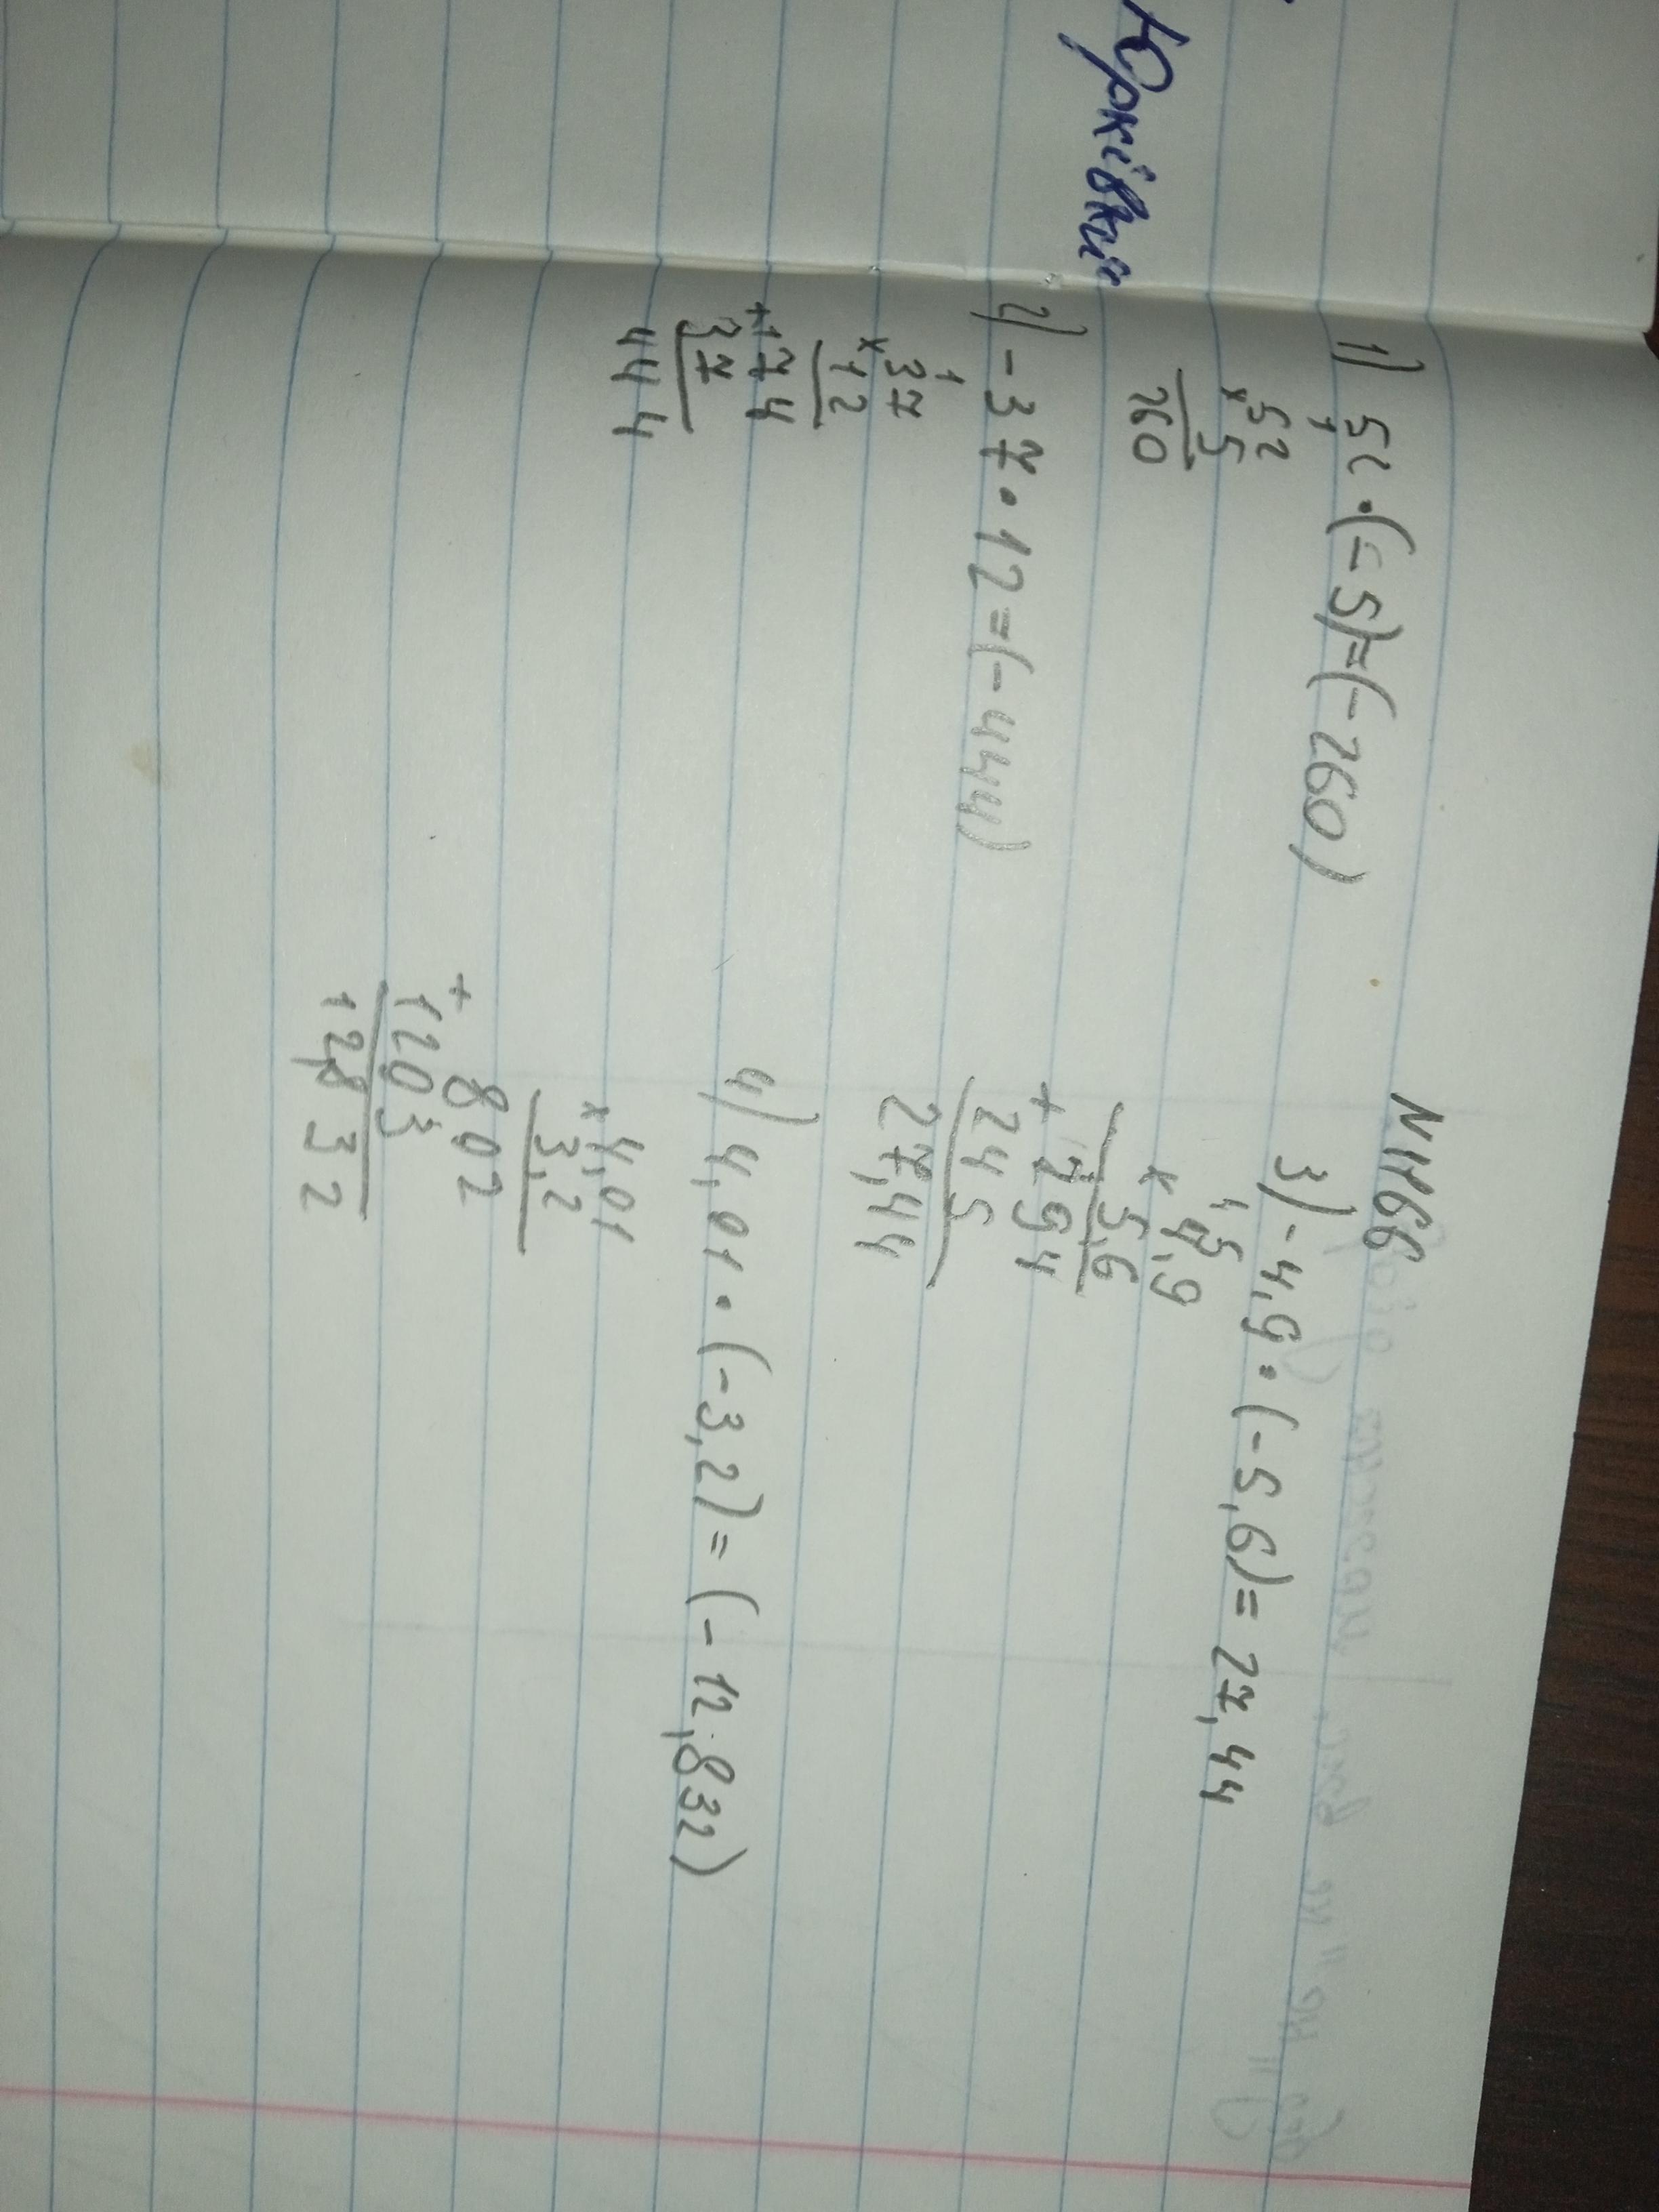 Юрківка
N1166
1) 52·(-5)=(-260)
1
52
×5
260
2) -37·12=(-444)
1
37
×12
+174
37
444
3) -4,9·(-5,6)=27,44
4,5
×4,9
5,6
+294
245
27,44
4) 4,01·(-3,2)=(-12,832)
×4,01
3,2
+802
1203
12,832